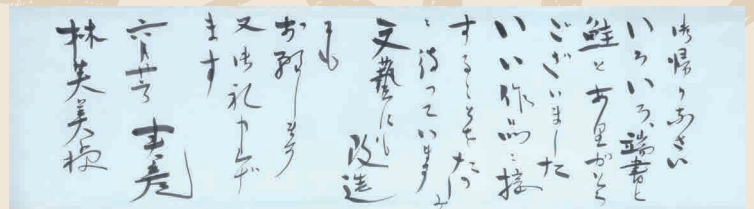 御帰りなさい
いろいろ、端書と
鮭とあり加とう
ございました
いい作品に接
することをたのしみ
に待っています
文藝にも
改造
にも
お願します
又御礼まで
ます
六月廿六日
林芙美様